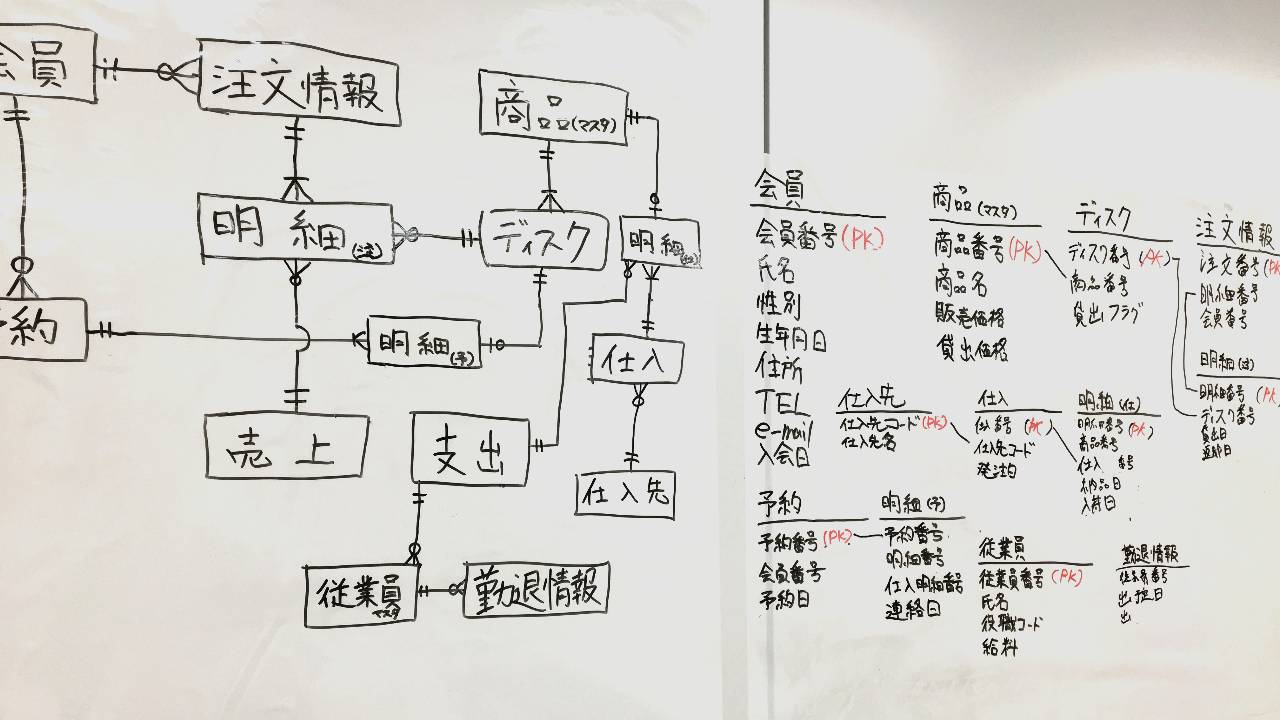 会員
注文情報
商品(マスタ)
明細(注)
ディスク
明細(仕)
約
明細(予)
仕入
売上
支出
仕入先
従業員
マスタ
勤退情報
会員
会員番号(PK)
氏名
性別
生年月日
住所
TEL
e-mail
入会日
商品(マスタ)
商品番号(PK)
商品名
販売価格
貸出価格
ディスク
ディスク番号(PK)
商品番号
貸出フラグ
注文情報
注文番号(PK
明細番号
会員番号
明細(注)
明細番号(PK
ディスク番号
貸出日
返却日
仕入先
仕入先コード(PK)
仕入先名
仕入
(PK)
仕入先コード
発注日
明細(仕)
明細番号(PK)
商品番号
仕入 番号
納品日
入荷日
予約
予約番号(PK)
会員番号
予約日
明細(予)
予約番号
明細番号
仕入明細番号
連絡日
従業員
従業員番号(PK)
氏名
役職コード
給料
勤退情報
従業員番号
出